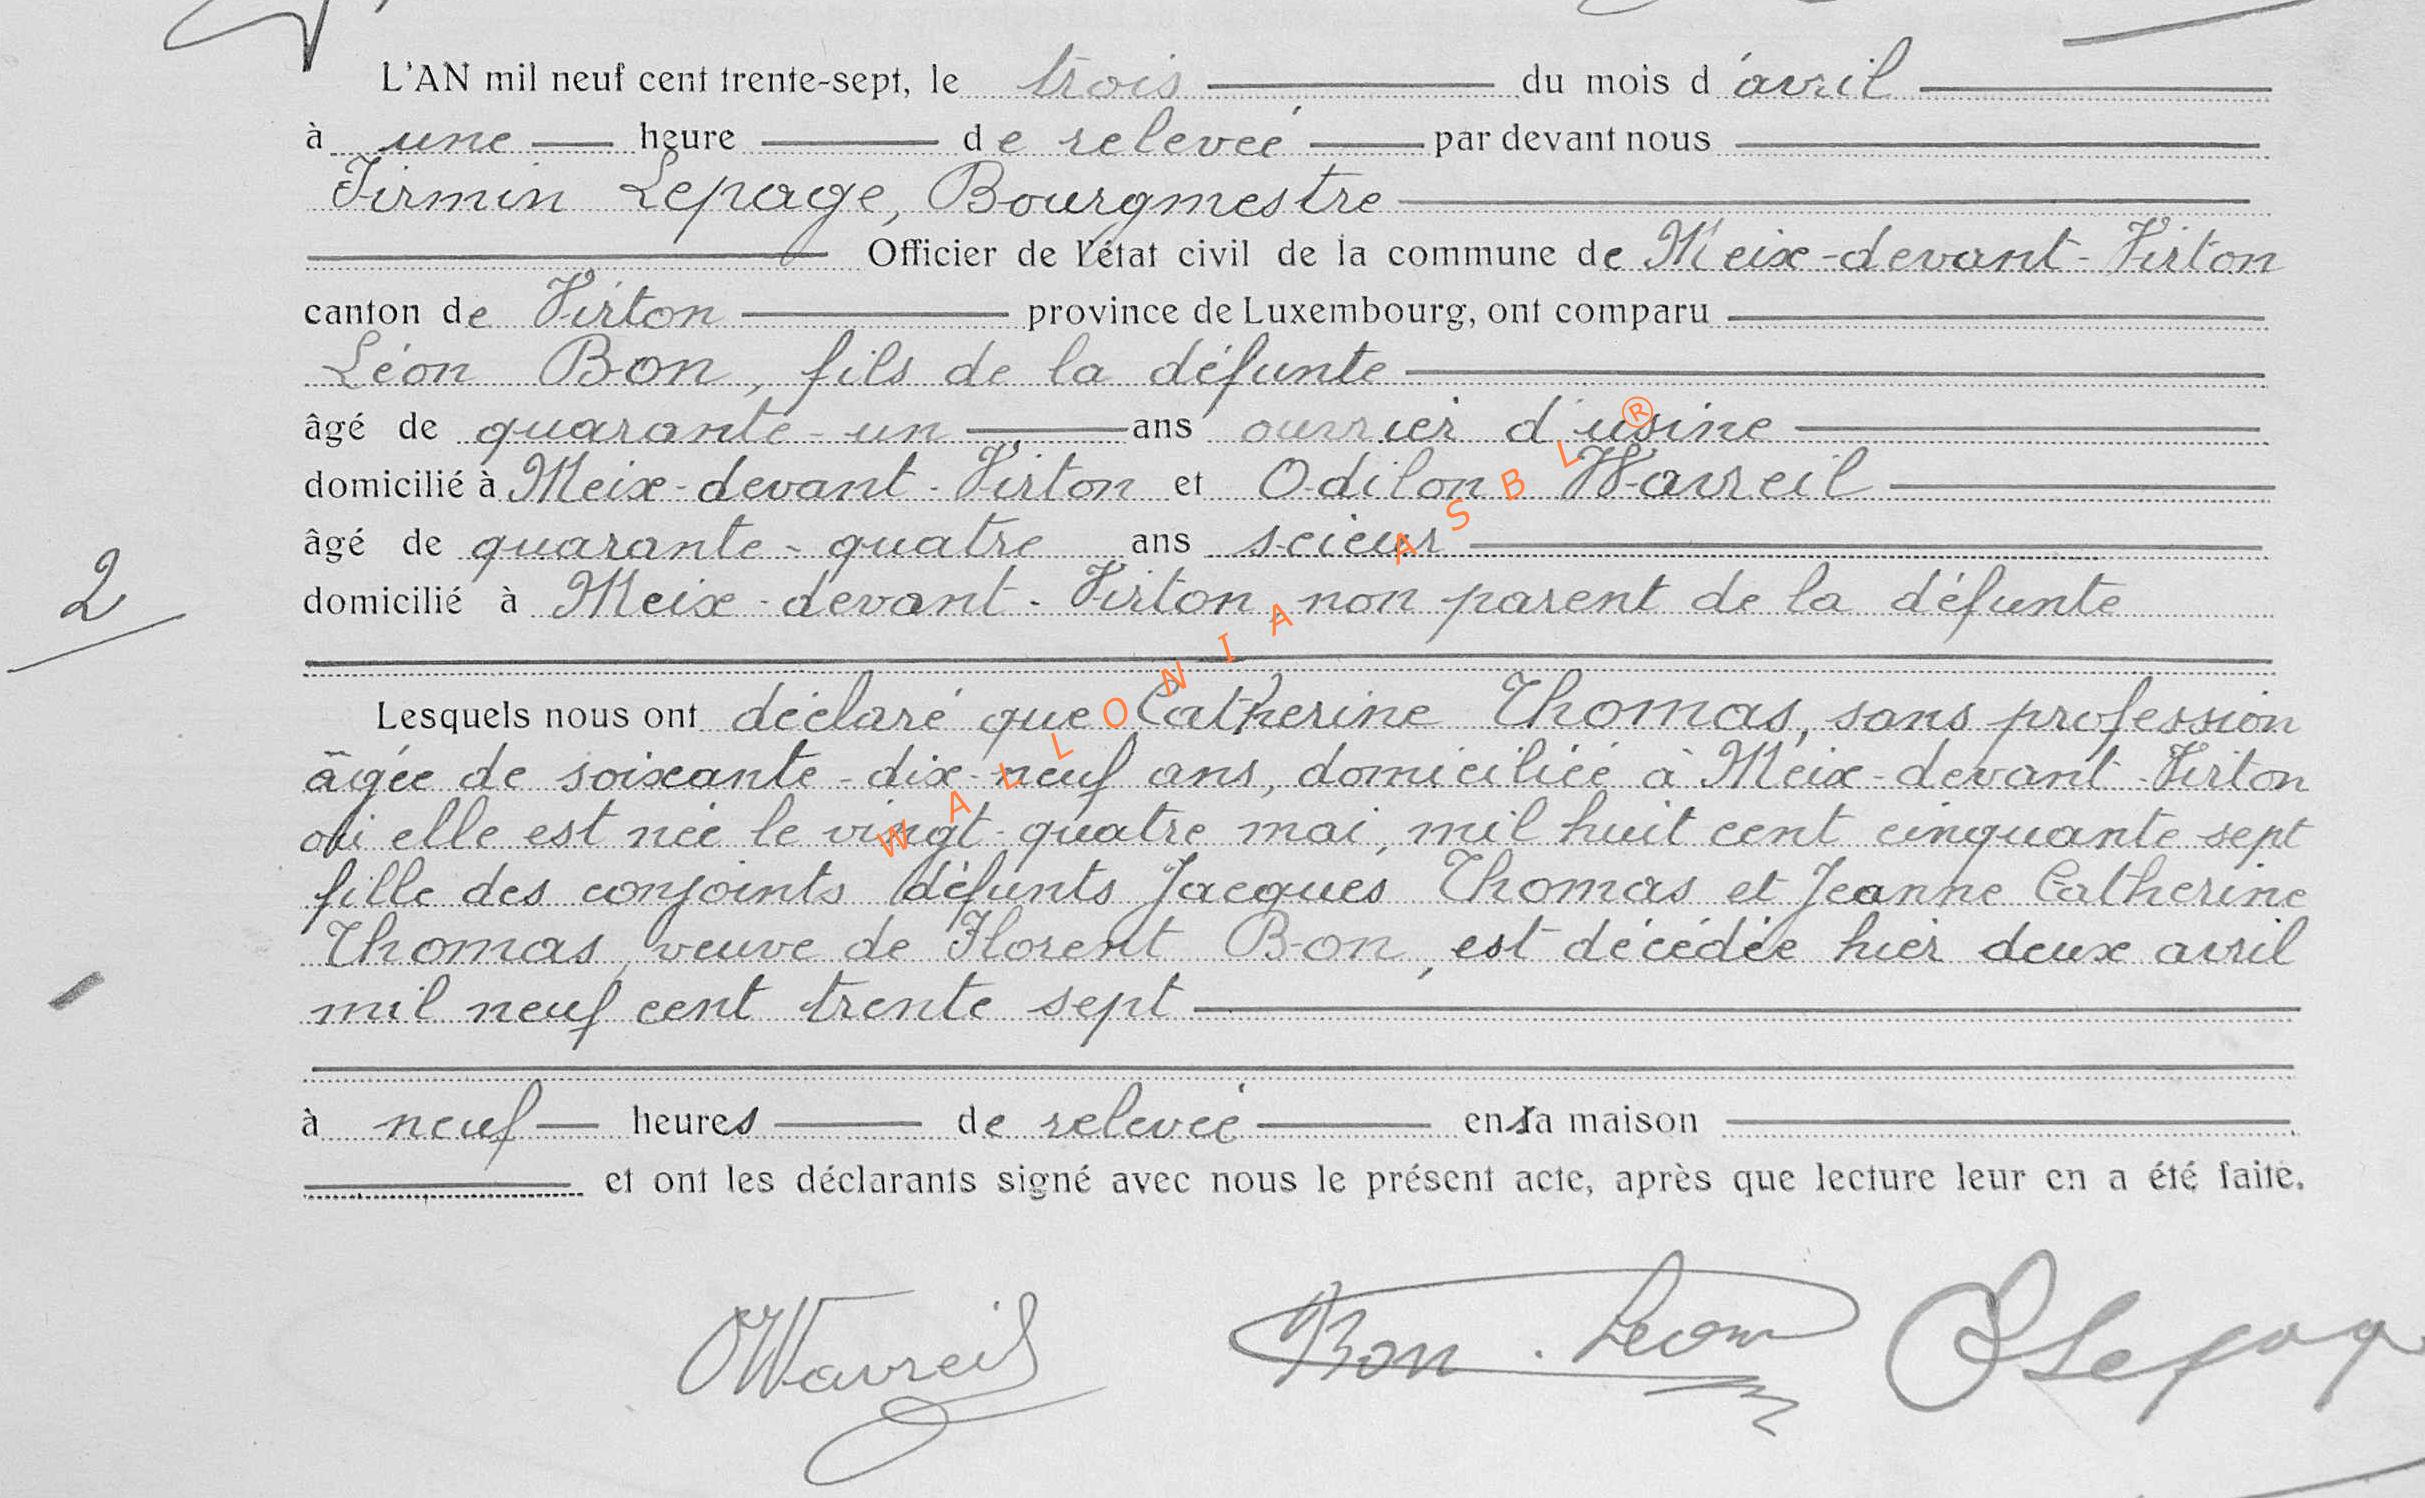 L'AN mil neuf cent trente-sept, le trois du mois d'avril
à une heure de relevée par devant nous
Firmin Lepage, Bourgmestre
Officier de l'état civil de la commune de Meix-devant-Virton
canton de Virton province de Luxembourg, ont comparu
Léon Bon, fils de la défunte
âgé de quarante-un ans ouvrier d'usine
domicilié à Meix-devant-Virton et Odilon Wavreil
âgé de quarante-quatre ans scieur
domicilié à Meix-devant-Virton non parent de la défunte
2
Lesquels nous ont déclaré que Catherine Thomas, sans profession
âgée de soixante-dix-neuf ans, domiciliée à Meix-devant-Virton
où elle est née le vingt-quatre mai, mil huit cent cinquante sept
fille des conjoints défunts Jacques Thomas et Jeanne Catherine
Thomas, veuve de Florent Bon, est décédée hier deux avril
mil neuf cent trente sept
à neuf heures de relevée en sa maison
et ont les déclarants signé avec nous le présent acte, après que lecture leur en a été faite.
OWavreil Bon . Léon Lepage
WALLONIA ASBL ®